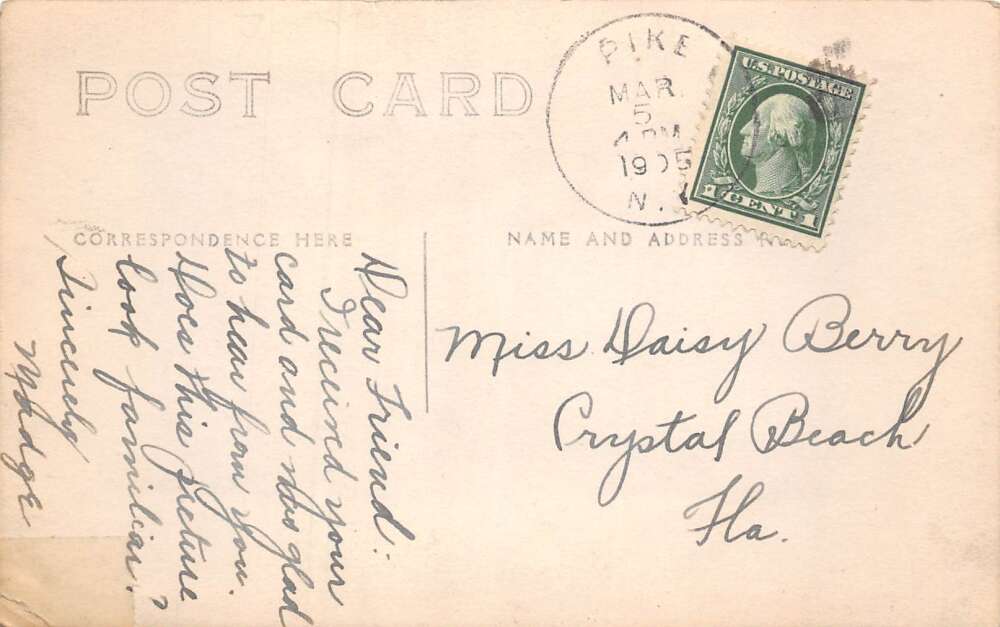 POST CARD
PIKE
MAR.
5
4 PM
1905
N.Y.
U.S. POSTAGE
1 CENT 1
CORRESPONDENCE HERE
NAME AND ADDRESS
Dear Friend:
I received your
card and was glad
to hear from you.
Does this picture
look familiar?
Sincerely
Madge
Miss Daisy Berry
Crystal Beach
Fla.